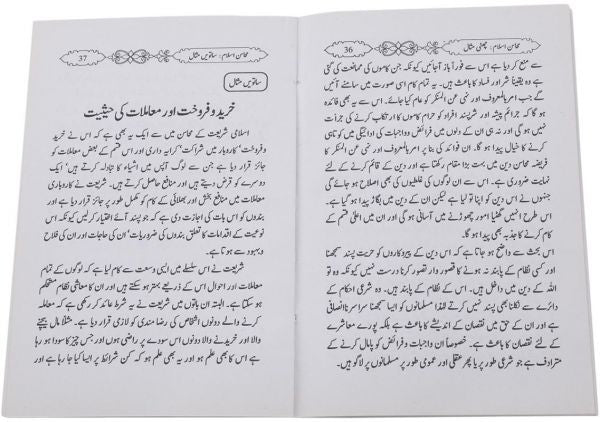 محاسن اسلام: چھٹی مثال
36
سے منع کر دیا ہے اس سے فوراً باز آجائیں کیونکہ جن کاموں کی ممانعت کی گئی
ہے وہ یقیناً شر اور فساد کا باعث ہیں۔ یہ تمام کام اسی صورت میں سامنے آئیں
گے جب امر بالمعروف اور نہی عن المنکر کیا جائے گا۔ اس سے یہ بھی فائدہ
ہوگا کہ جرائم پیشہ اور شرپسند افراد کو حرام کاموں کا ارتکاب کرنے کی جرأت
نہیں ہوگی اور نہ ہی ان کے دلوں میں فرائض و واجبات کی ادائیگی میں کوتاہی
کرنے کا خیال پیدا ہوگا۔ ان فوائد کی بنا پر امر بالمعروف اور نہی عن المنکر کا
فریضہ محاسن دین میں بہت بڑا مقام رکھتا ہے اور دین کے قائم کرنے کے لئے
نہایت ضروری ہے۔ اس سے ان لوگوں کی غلطیوں کی بھی اصلاح ہو جائے گی
جنہوں نے اس دین کو اپنا تو لیا ہے لیکن ان کے دین میں بگاڑ پیدا ہو گیا ہے۔
اس طرح انہیں گھٹیا امور چھوڑنے میں آسانی ہوگی اور ان میں اعلیٰ قسم کے
کام کرنے کا جذبہ بھی پیدا ہوگا۔
اس بحث سے واضح ہو جاتا ہے کہ اس دین کے پیروکاروں کو حریت پسند سمجھنا
اور کسی نظام کے پابند نہ ہونے کا قصور وار تصور کرنا درست نہیں کیونکہ وہ تو
اللہ کے دین میں داخل ہیں۔ اس کے نظام کے پابند ہیں۔ وہ شرعی احکام کے
دائرے سے نکلنا بھی پسند نہیں کرتے لہٰذا مسلمانوں کو ایسا سمجھنا سراسر ناانصافی
ہے اور ان کے حق میں نقصان کے اندیشے کا باعث ہے بلکہ پورے معاشرے
کے لئے نقصان کا باعث ہے۔ خصوصاً ان واجبات و فرائض کو پامال کرنے کے
مترادف ہے جو شرعی طور پر یا پھر عقلی اور عمومی طور پر مسلمانوں پر لاگو ہیں۔
محاسن اسلام: ساتویں مثال
37
ساتویں مثال
خرید و فروخت اور معاملات کی حیثیت
اسلامی شریعت کے محاسن میں سے ایک یہ بھی ہے کہ اس نے خرید
و فروخت، کاروبار میں شراکت، کرایہ داری اور اس قسم کے بعض معاملات کو
جائز قرار دیا ہے جن سے لوگ آپس میں اشیاء کا تبادلہ کرتے ہیں، ایک
دوسرے کو قرض دیتے ہیں اور منافع حاصل کرتے ہیں۔ شریعت نے کاروباری
معاملات میں منافع بخش اور بھلائی کے کام کو مکمل طور پر جائز قرار دیا ہے اور
بندوں کو اس بات کی اجازت دی ہے کہ جو پسند آئے اختیار کر لیں کیونکہ اس
نوعیت کے اقدامات کا تعلق بندوں کی ضروریات، ان کی حاجات اور ان کی فلاح
و بہبود سے ہوتا ہے۔
شریعت نے اس سلسلے میں ایسی وسعت سے کام لیا ہے کہ لوگوں کے تمام
معاملات اور احوال اس کے ذریعے بہتر ہو سکتے ہیں اور ان کا معاشی نظام مستحکم
ہو سکتا ہے۔ البتہ ان باتوں میں شریعت نے یہ شرط عائد کر رکھی ہے کہ معاملہ
کرنے والے دونوں اشخاص کی رضا مندی کو لازمی قرار دیا ہے۔ مثلاً مال بیچنے
والا اور خریدنے والا دونوں اس سودے پر راضی ہوں اور جس چیز کا سودا ہو رہا
ہے اس کا بھی علم ہو اور یہ بھی علم ہو کہ کن شرائط پر ایسا کیا جا رہا ہے اور